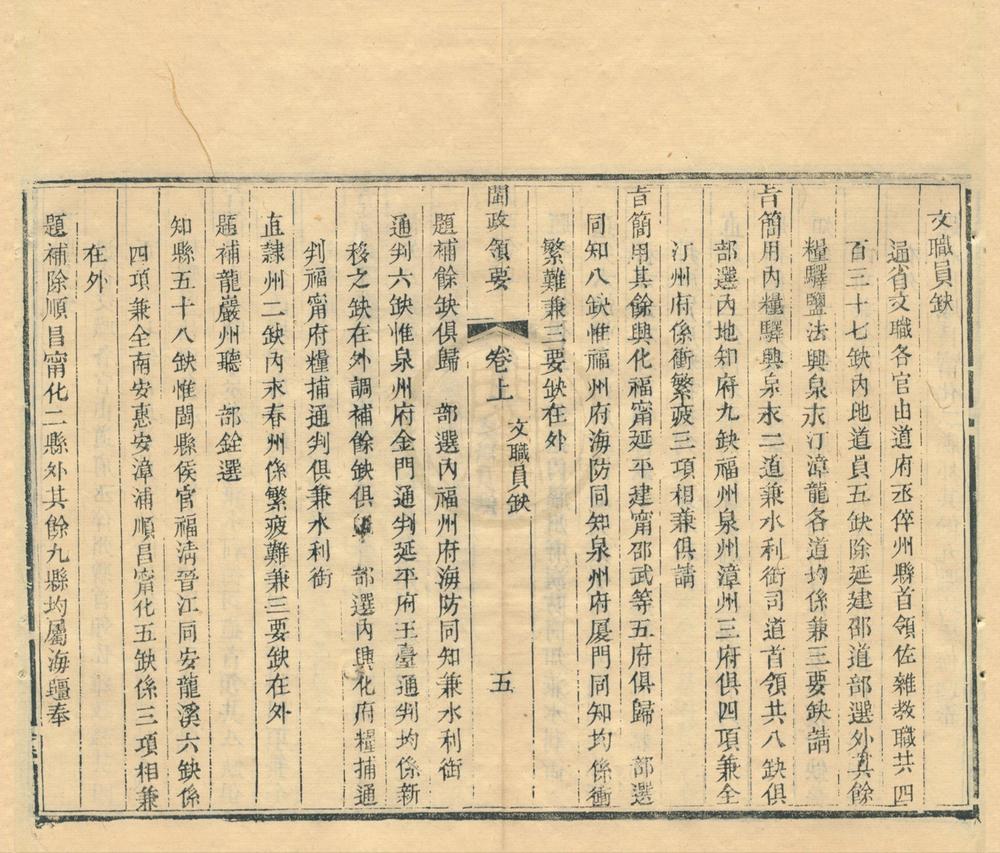 文職員缺
通省文職各官由道府丞倅州縣首領佐雜教職共四
百三十七缺內地道員五缺除延建邵道部選外其餘
糧驛鹽法興泉永汀漳龍各道均係兼三要缺請
旨簡用內糧驛興泉永二道兼水利銜司道首領共八缺俱
部選內地知府九缺福州泉州漳州三府俱四項兼全
汀州府係衝繁疲三項相兼俱請
旨簡用其餘興化福甯延平建甯邵武等五府俱歸　部選
同知八缺惟福州府海防同知泉州府厦門同知均係衝
繁難兼三要缺在外
閩政領要　卷上　文職員缺　五
題補餘缺俱歸　部選內福州府海防同知兼水利銜
通判六缺惟泉州府金門通判延平府王臺通判均係新
移之缺在外調補餘缺俱　部選內興化府糧捕通
判福甯府糧捕通判俱兼水利銜
直隸州二缺內永春州係繁疲難兼三要缺在外
題補龍巖州聽　部銓選
知縣五十八缺惟閩縣侯官福淸晉江同安龍溪六缺係
四項兼全南安惠安漳浦順昌甯化五缺係三項相兼
在外
題補除順昌甯化二縣外其餘九縣均屬海疆奉